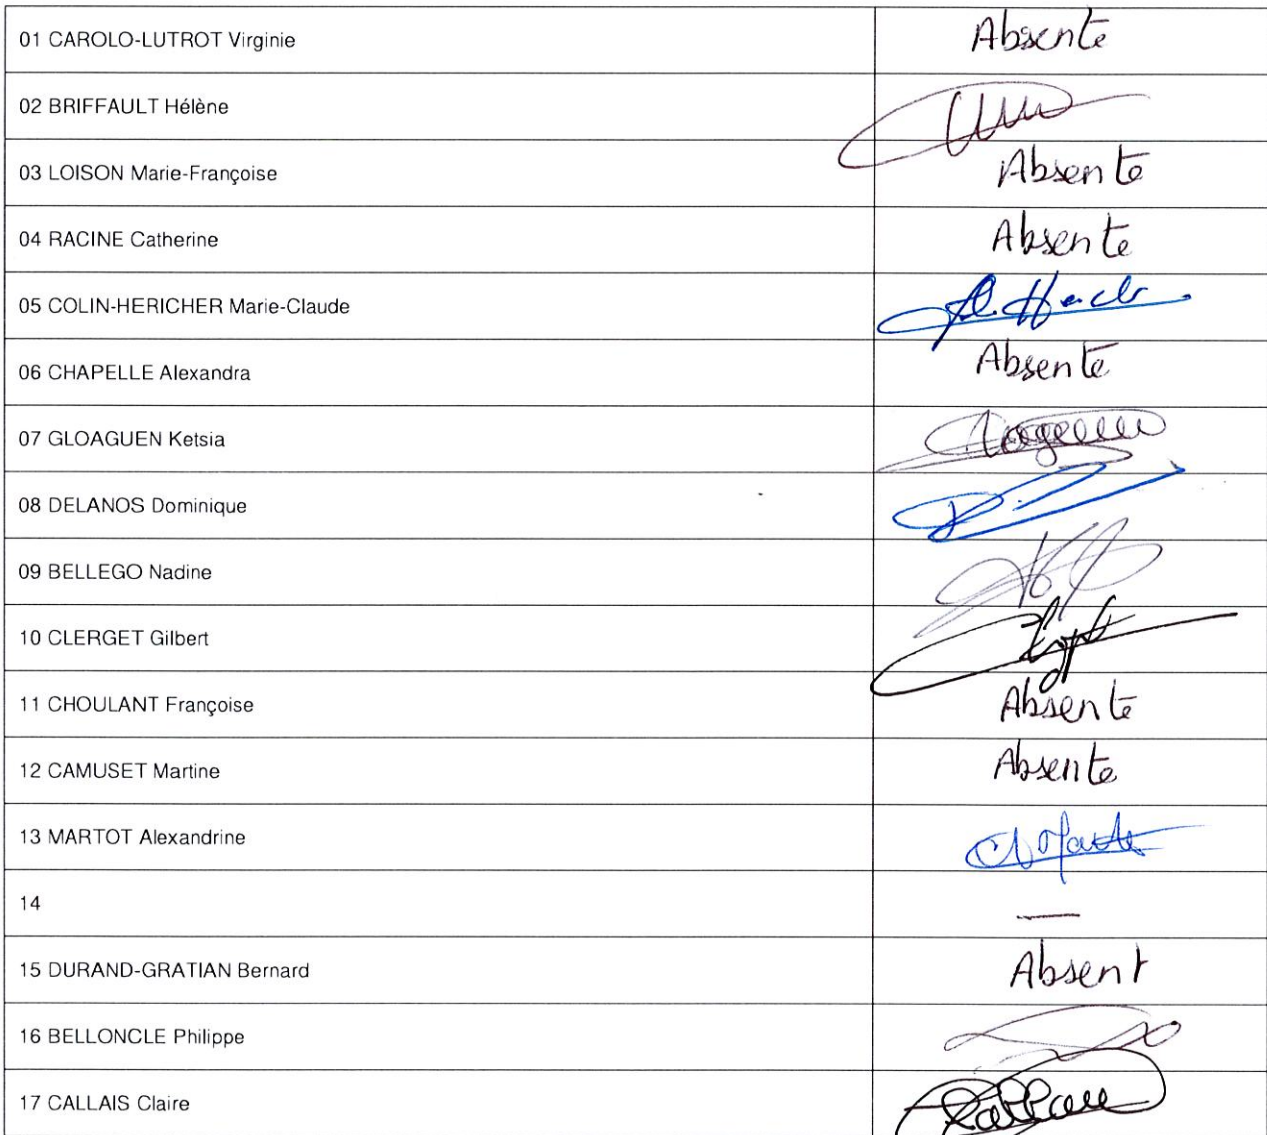 01 CAROLO-LUTROT Virginie Absente
02 BRIFFAULT Hélène
03 LOISON Marie-Françoise Absente
04 RACINE Catherine Absente
05 COLIN-HERICHER Marie-Claude
06 CHAPELLE Alexandra Absente
07 GLOAGUEN Ketsia
08 DELANOS Dominique
09 BELLEGO Nadine
10 CLERGET Gilbert
11 CHOULANT Françoise Absente
12 CAMUSET Martine Absente
13 MARTOT Alexandrine
14 —
15 DURAND-GRATIAN Bernard Absent
16 BELLONCLE Philippe
17 CALLAIS Claire